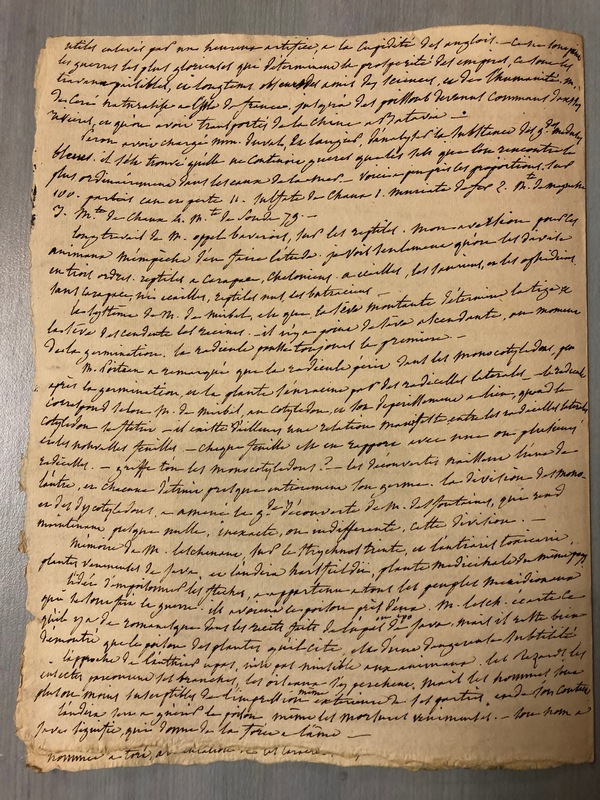 utiles enlevés par une heureux artifice, a la cupidité des anglois. — Ce ne sont pas
les guerres les plus glorieuses qui déterminent la prosperité des empires, ce sont les
travaux paisibles, et longtems obscurs des amis des sciences, et de l'humanité. M.
de Ceré naturalisa a l'isle de france, jusqu'a des poissons devenus communs dans les
rivieres, et qu'on avoit transportés de la Chine a Batavia.
Peron avoit chargé mm. duval, et laugier, d'analyser la substance des g.des meduses
bleues. il s'est trouvé qu'elle ne contenoit gueres que les sels que l'on rencontre le
plus ordinairement dans les eaux de la mer. Voici a peu près les proportions. sur
100. parties eau en perte 11. sulfate de Chaux 1. muriate de fer 2. M.te de magnesie
3. M.te de Chaux 4. M.te de soude 79. —
long travail de M. oppel bavarois, sur les reptiles. mon aversion pour les
animaux m'empêche d'en faire l'étude. je vois seulement qu'on les divise
en trois ordres. reptiles a carapace, cheloniens. a ecailles, les sauriens, et les ophidiens
sans carapace, ni ecailles, reptiles nuds, les batraciens. —
le systême de M. de mirbel, est que la sève montante détermine la tige, et
la sève descendante les racines. — il n'y a point de sève ascendante, au moment
de la germination. la radicule pousse toujours la premiere. —
M. Poiteau a remarqué que la radicule périt dans les monocotyledons, peu
après la germination, et la plante s'enracine par des radicelles laterales — la radicule
correspond selon M. de mirbel, au cotyledon, et son depérissement a lieu, quand le
cotyledon se flétrit — il existe d'ailleurs une relation manifeste entre les radicelles laterales
et les nouvelles feuilles. — chaque feuille est en rapport avec une ou plusieurs
radicelles. — greffe t'on les monocotyledons? — les découvertes naissent l'une de
l'autre, et chacune détruit presque entierement son germe. la division des mono-
et des dycotyledons, a amené la g.de découverte de M. desfontaines, qui rend
maintenant presque nulle, inexacte, ou indifferente, cette division. —
Mémoire de M. leschenault, sur le strychnos tieute, et l'antiaris toxicaria,
plantes vénéneuses de Java, et l'andira harsfieldii, plante medicinale du même pays
l'idée d'empoisonner les fleches, a appartenu a tous les peuples meridionaux
qui se sont fait la guerre. ils avoient ce poison près d'eux. M. lesch. écarte ce
qu'il y a de romanesque dans les recits faits de l'upas ou de Java, mais il reste bien
démontré que le poison des plantes qu'il cite, est d'une dangereuse subtilité
l'approche de l'anthiar upas, n'est pas nuisible aux animaux. les lezards, les
insectes parcourent ses branches, les oiseaux s'y perchent. mais les hommes sont
plus ou moins susceptibles de l'impression même extérieure de ses parties, ou de son contact
l'andira sert a guérir le poison, même les morsures venimeuses. — son nom a
Java signifie, qui donne de la force a l'âme —